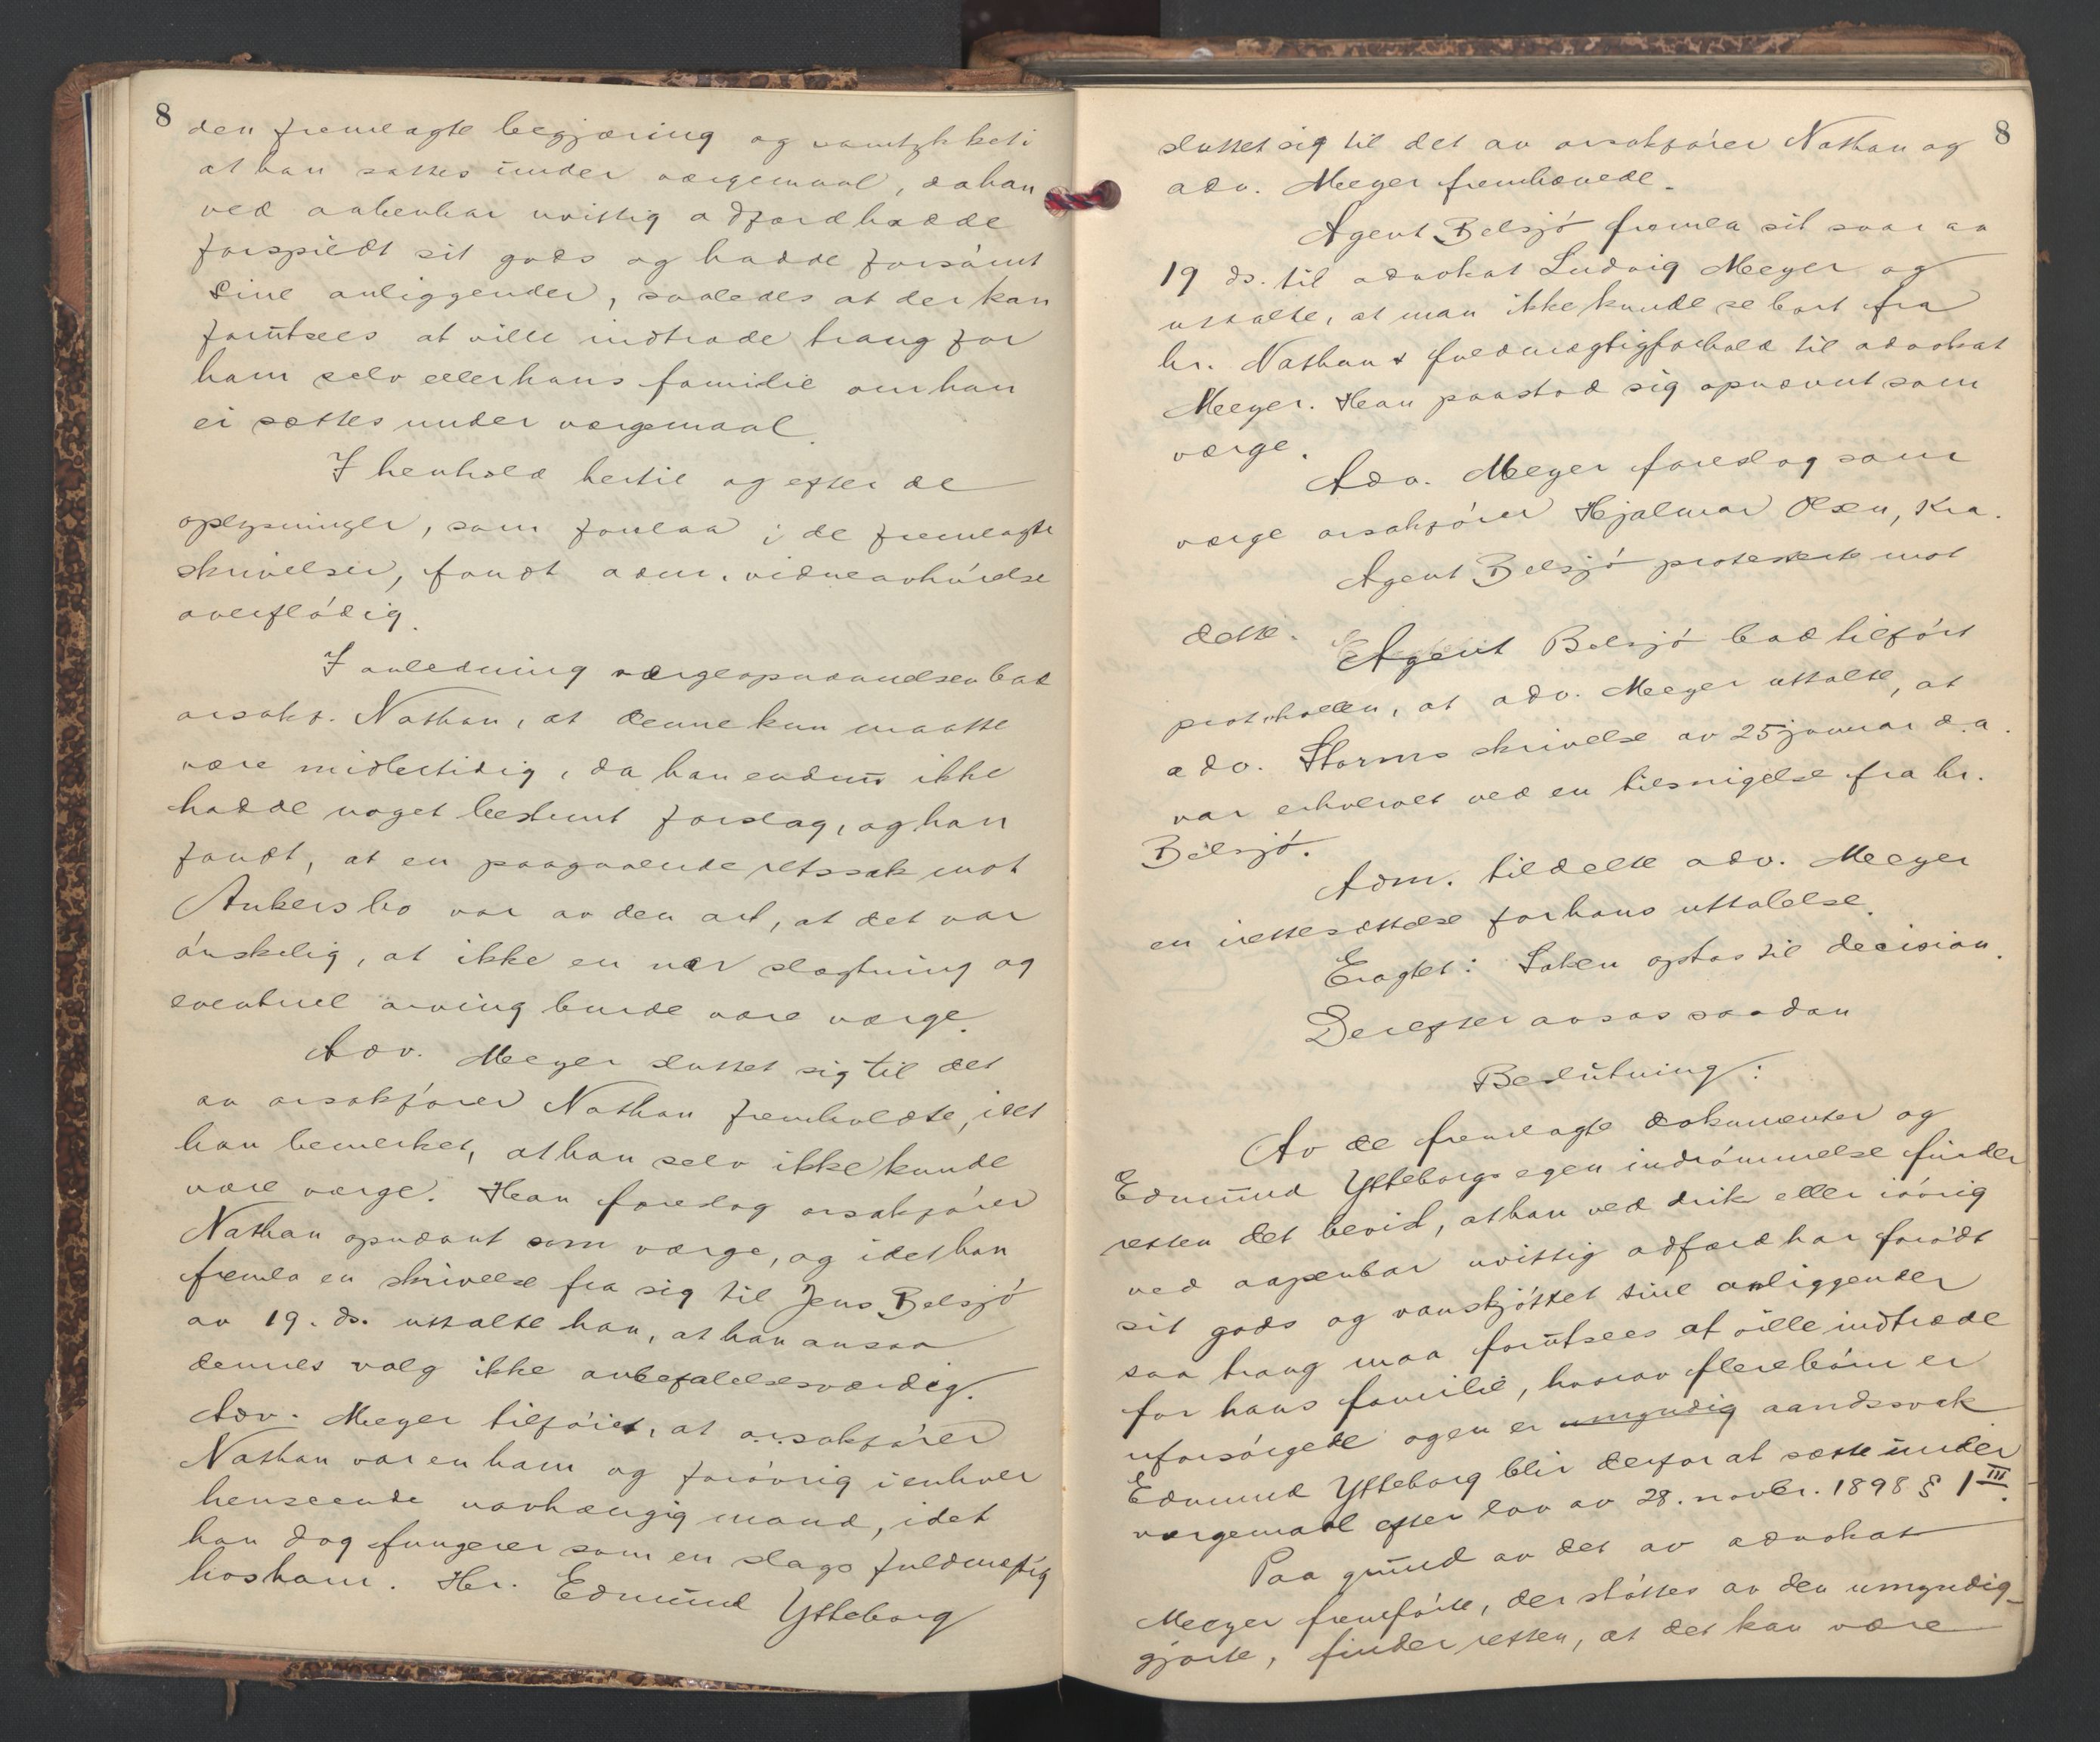 8
den fremlagte begjæring og samtykket i
at han sattes under værgemaal, da han
ved aabenbar uvittig adfærd hadde
forspildt sit gods og hadde forsømt
sine anliggender, saaledes at der kan
forutsees at ville indtræde trang for
ham selv eller hans familie om han
ei sættes under værgemaal.
I henhold hertil og efter de
oplysninger, som forelaa i de fremlagte
skrivelser, fandt adm. vidneavhørelse
overflødig.
I anledning værgeopnævnelsen bad
orsakf. Nathan, at denne kun maatte
være midlertidig, da han endnu ikke
hadde noget bestemt forslag, og han
fandt, at en paagaaende retssak mot
Ankers bo var av den art, at det var
ønskelig, at ikke en nær slægtning og
eventuel arving burde være værge.
Adv. Meyer sluttet sig til det
av orsakfører Nathan fremholdte, idet
han bemerket, at han selv ikke kunde
være værge. Han foreslog orsakfører
Nathan opnævnt som værge, og idet han
fremla en skrivelse fra sig til Jens Belsjø
av 19. ds. uttalte han, at han ansaa
dennes valg ikke anbefalelsesværdig.
Adv. Meyer tilføiet, at orsakfører
Nathan var en ham og forøvrig i enhver
henseende uavhængig mand, idet
han dog fungerer som en slags fuldmægtig
hos ham. Hr. Edmund Ytteborg
8
sluttet sig til det av orsakfører Nathan og
adv. Meyer fremhævede.
Agent Belsjø fremla sit svar av
19 ds. til advokat Ludvig Meyer og
uttalte, at man ikke kunde se bort fra
hr. Nathans fuldmægtigforhold til advokat
Meyer. Han paastod sig opnævnt som
værge.
Adv. Meyer foreslog som
værge orsakfører Hjalmar Olsen, Kra.
Agent Belsjø protesterte mot
dette.
Agent Belsjø bad tilført
protokollen, at adv. Meyer uttalte, at
adv. Storms skrivelse av 25 januar d.a.
var erhvervet ved en tilsnigelse fra hr.
Belsjø.
Adm. tildelte adv. Meyer
en irettesættelse for hans uttalelse.
Eragtet: Saken optas til decision.
Derefter avsas saadan
Beslutning:
Av de fremlagte dokumenter og
Edmund Ytteborgs egen indrømmelse finder
retten det bevist, at han ved drik eller iøvrig
ved aapenbar uvittig adfærd har forødt
sit gods og vanskjøttet sine anliggender
saa trang maa forutsees at ville indtræde
for hans familie, hvorav flere børn er
uforsørgede og en er umyndig aandssvak
Edmund Ytteborg blir derfor at sætte under
værgemaal efter lov av 28. novbr. 1898 § 1 III.
Paa grund av det av advokat
Meyer fremførte, der støttes av den umyndig-
gjorte, finder retten, at det kan være